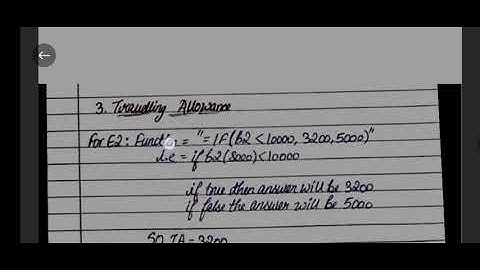 3. Travelling Allowance
For E2: Function = "=IF(b2<10000, 3200, 5000)"
i.e = if b2(8000)<10000
if true then answer will be 3200
if false the answer will be 5000
SO TA = 3200